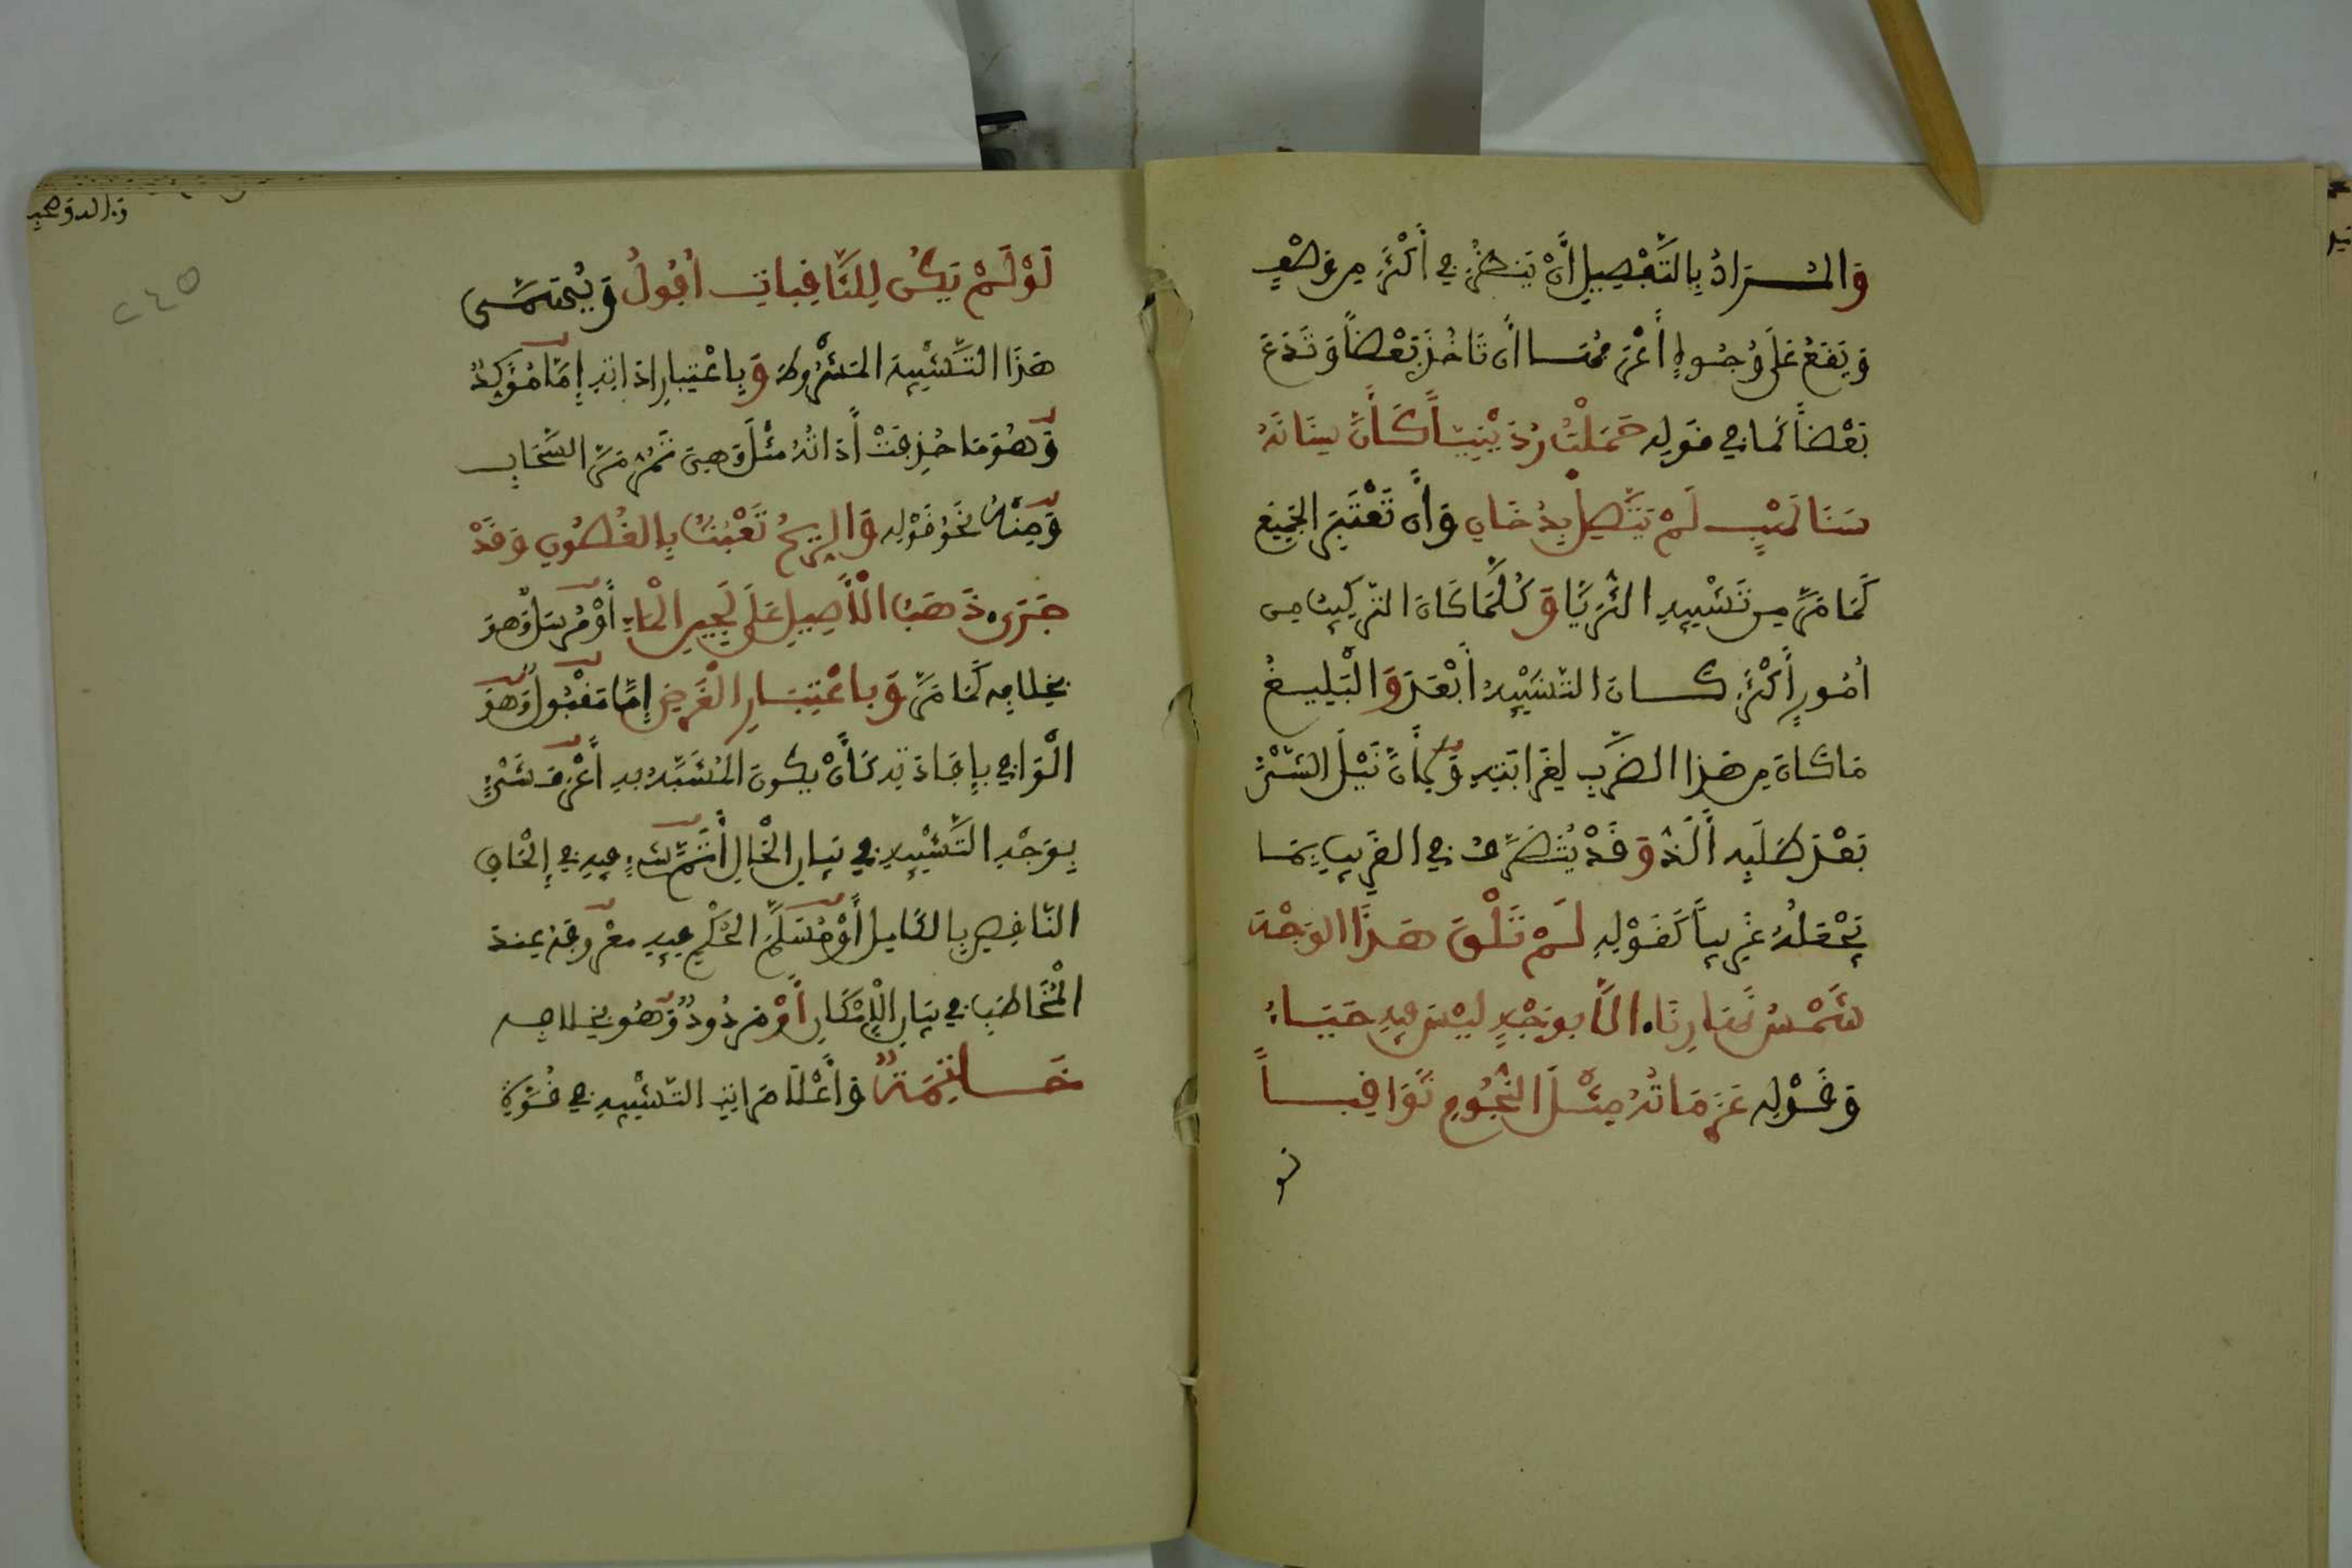 وَالمُرَادُ بِالتَّفْصِيلِ أَنْ يَنْظُرَ فِي أَكْثَرَ مِن وَصْفٍ
وَيَقَعُ عَلَى وُجُوهٍ أَعْرَفُهَا أَن تَاخُذَ بَعْضاً وَتَدَعَ
بَعْضاً كَمَا فِي قَوْلِهِ حَمَلْتُ رُدَيْنِيّاً كَأَنَّ سِنَانَهُ
سَنَا لَهَبٍ لَمْ يَتَّصِلْ بِدُخَانِ وَأَن تَعْتَبِرَ الجَمِيعَ
كَمَا مَرَّ مِن تَشْبِيهِ الثُّرَيَّا وَكُلَّمَا كَانَ التَّرْكِيبُ مِن
أُمُورٍ أَكْثَرَ كَانَ التَّشْبِيهُ أَبْعَدَ وَالْبَلِيغُ
مَا كَانَ مِن هَذَا الضَّرْبِ لِغَرَابَتِهِ وَلِأَنَّ نَيْلَ الشَّيْءِ
بَعْدَ طَلَبِهِ أَلَذُّ وَقَدْ يُتَصَرَّفُ فِي القَرِيبِ بِمَا
يَجْعَلُهُ غَرِيباً كَقَوْلِهِ لَمْ تَلْقَ هَذَا الوَجْهَ
شَمْسُ نَهَارِنَا الَّا بِوَجْهٍ لَيْسَ فِيهِ حَيَاءُ
وَقَوْلِهِ عَزَمَاتُهُ مِثْلُ النُّجُومِ ثَوَاقِباً
لو
لَوْ لَمْ يَكُن لِلثَّاقِبَاتِ أُفُولُ وَيُسَمَّى
هَذَا التَّشْبِيهَ المَشْرُوطَ وَبِاعْتِبَارِ اذَاتِهِ إِمَّا مُؤَكَّدٌ
وَهُوَ مَا حُذِفَتْ أَدَاتُهُ مِثْلُ وَهِيَ تَمُرُّ مَرَّ السَّحَابِ
وَمِنْهُ نَحْوُ قَوْلِهِ وَالرِّيحُ تَعْبَثُ بِالغُصُونِ وَقَدْ
جَرَى ذَهَبُ الْأَصِيلِ عَلَى لُجَيْنِ الْمَاءِ أَوْ مُرْسَلٌ وَهُوَ
بِخِلَافِهِ كَمَا مَرَّ وَبِاعْتِبَارِ الْغَرَضِ إِمَّا مَقْبُولٌ وَهُوَ
الْوَافِي بِإِفَادَتِهِ كَأَنْ يَكُونَ المُشَبَّهُ بِهِ أَعْرَفَ شَيْءٍ
بِوَجْهِ التَّشْبِيهِ فِي بَيَانِ الْحَالِ أَوْ أَتَمَّ شَيْءٍ فِيهِ فِي إِلْحَاقِ
النَّاقِصِ بِالكَامِلِ أَوْ مُسَلَّمَ الحُكْمِ فِيهِ مَعْرُوفَهُ عِنْدَ
الْمُخَاطَبِ فِي بَيَانِ الْإِمْكَانِ أَوْ مَرْدُودٌ وَهُوَ بِخِلَافِهِ
خَاتِمَةٌ وَأَعْلَا مَرَاتِبِ التَّشْبِيهِ فِي قُوَّةِ
٢٤٥